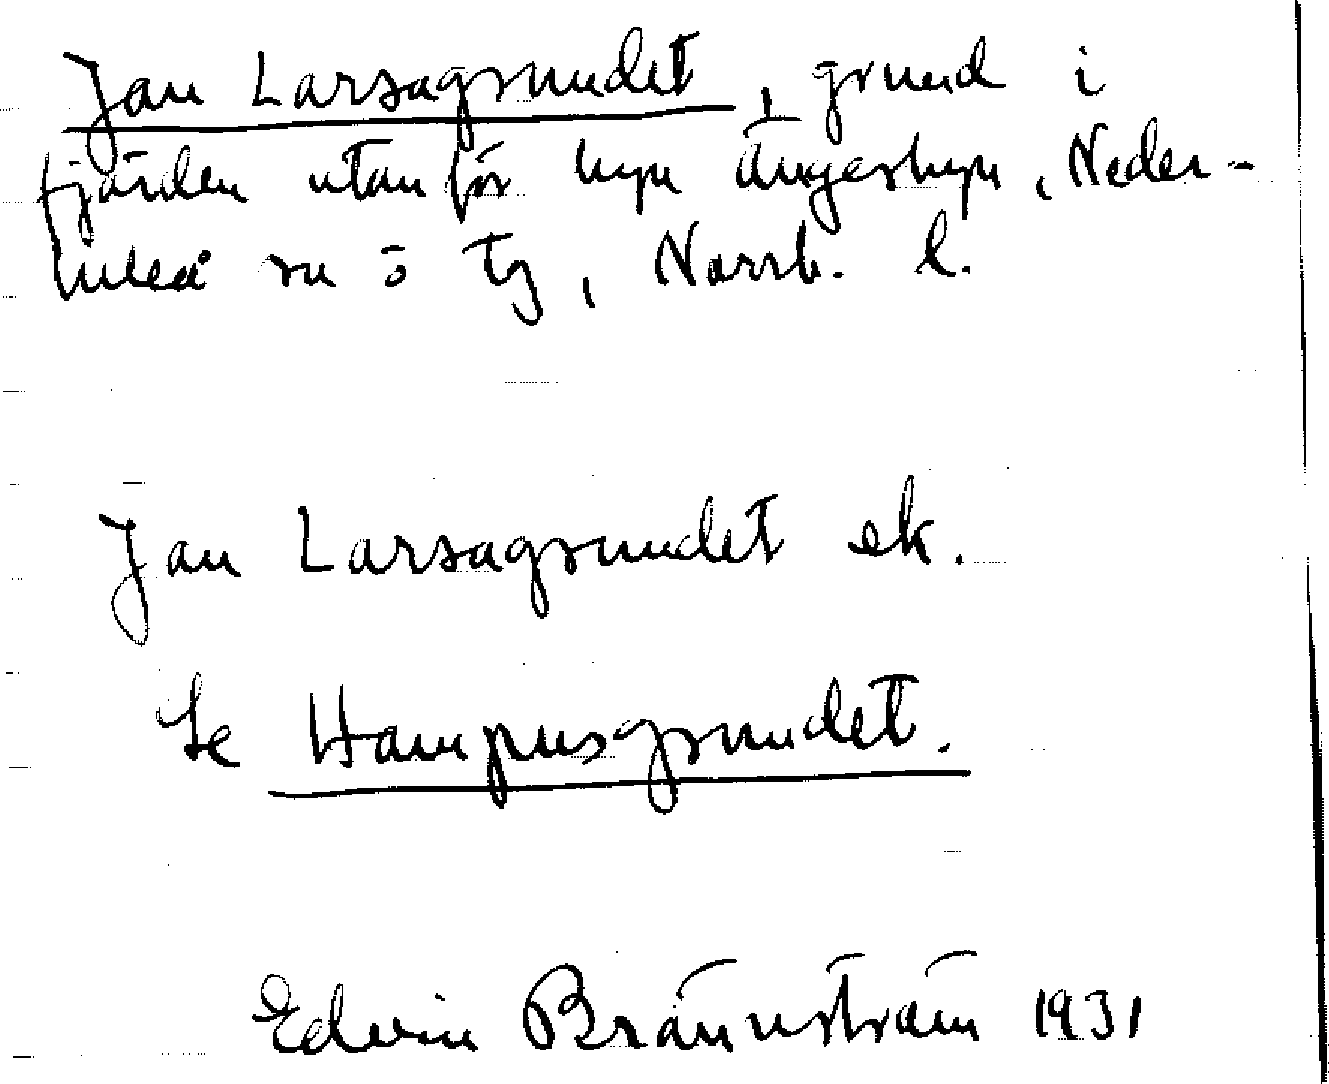 Jan Larsagrundet, grund i
fjärden utanför byn Ängesbyn, Neder-
luleå sn o tg, Norrb. l.
Jan Larsagrundet ek.
Se Hampusgrundet.
Edvin Brännström 1931